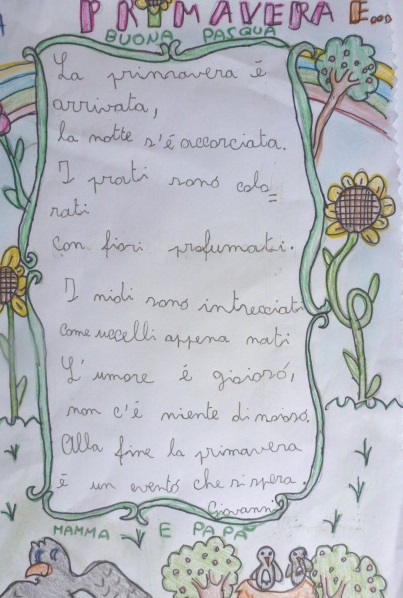 PRIMAVERA E...
BUONA PASQUA
La primavera é
arrivata,
la notte s'é accorciata.
I prati sono colo=
rati
con fiori profumati.
I nidi sono intrecciati
come uccelli appena nati
L'umore é gioioso,
non c'é niente di noioso.
Alla fine la primavera
é un evento che si spera.
Giovanni
MAMMA E PAPÀ